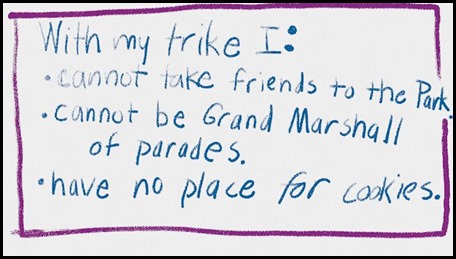 With my trike I:
•cannot take friends to the Park.
•cannot be Grand Marshall
of parades.
•have no place for cookies.